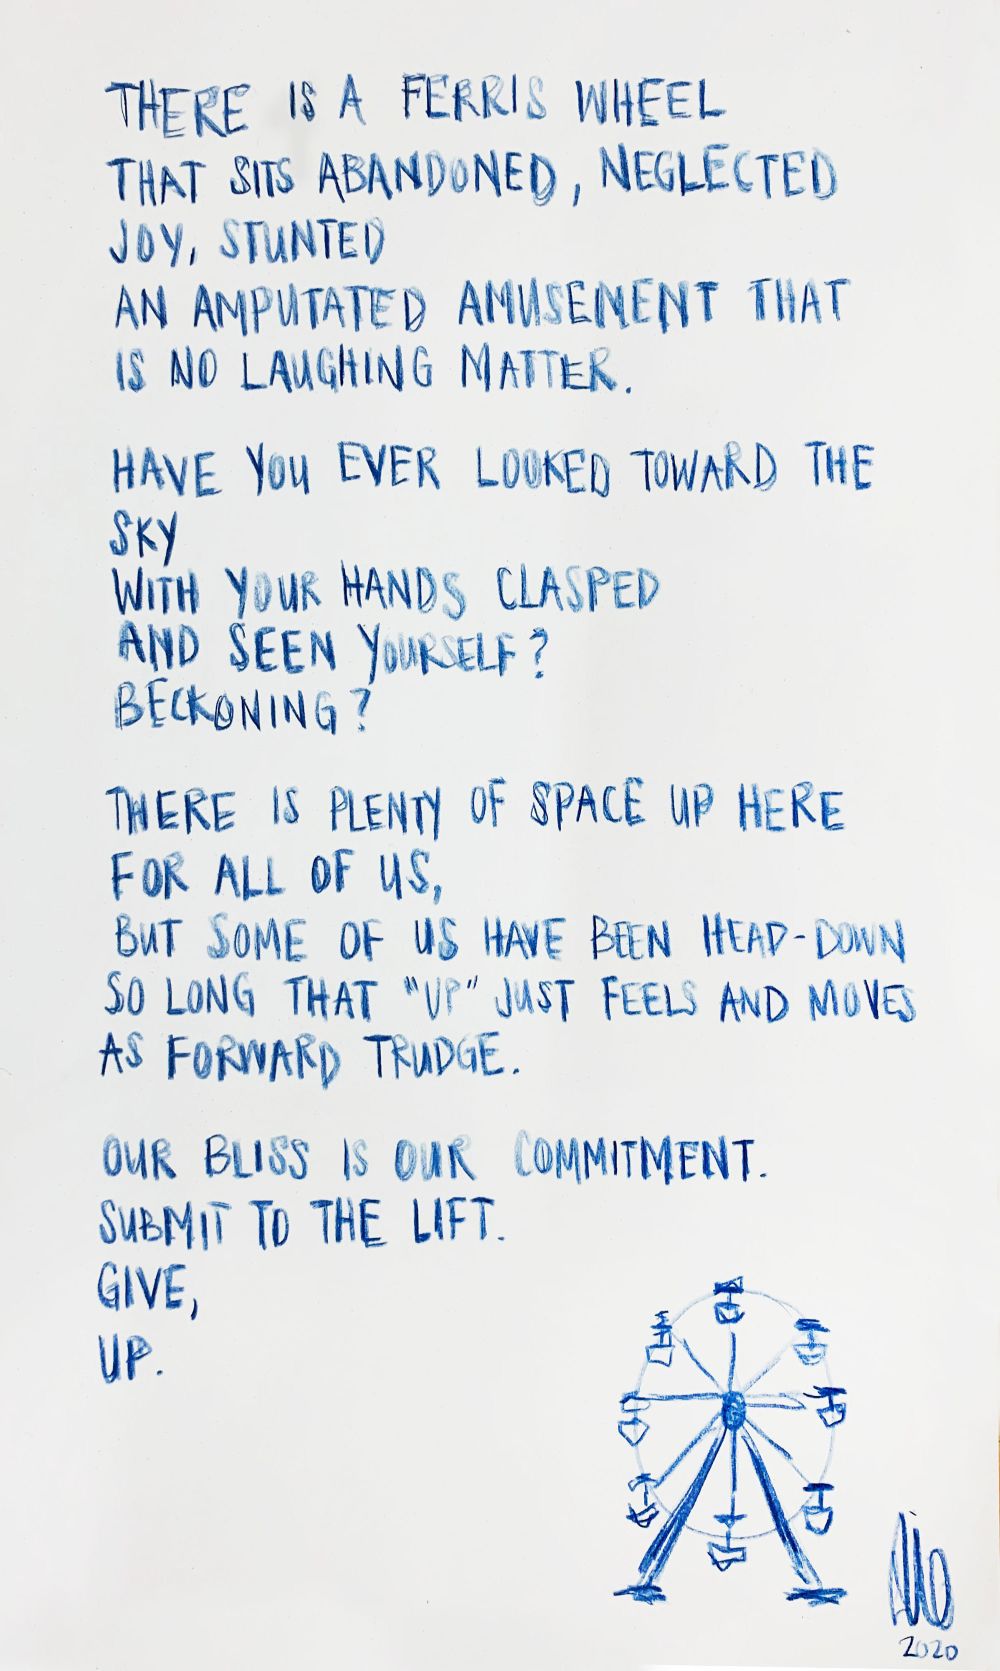 THERE IS A FERRIS WHEEL
THAT SITS ABANDONED, NEGLECTED
JOY, STUNTED
AN AMPUTATED AMUSEMENT THAT
IS NO LAUGHING MATTER.
HAVE YOU EVER LOOKED TOWARD THE
SKY
WITH YOUR HANDS CLASPED
AND SEEN YOURSELF?
BECKONING?
THERE IS PLENTY OF SPACE UP HERE
FOR ALL OF US,
BUT SOME OF US HAVE BEEN HEAD-DOWN
SO LONG THAT "UP" JUST FEELS AND MOVES
AS FORWARD TRUDGE.
OUR BLISS IS OUR COMMITMENT.
SUBMIT TO THE LIFT.
GIVE,
UP.
2020